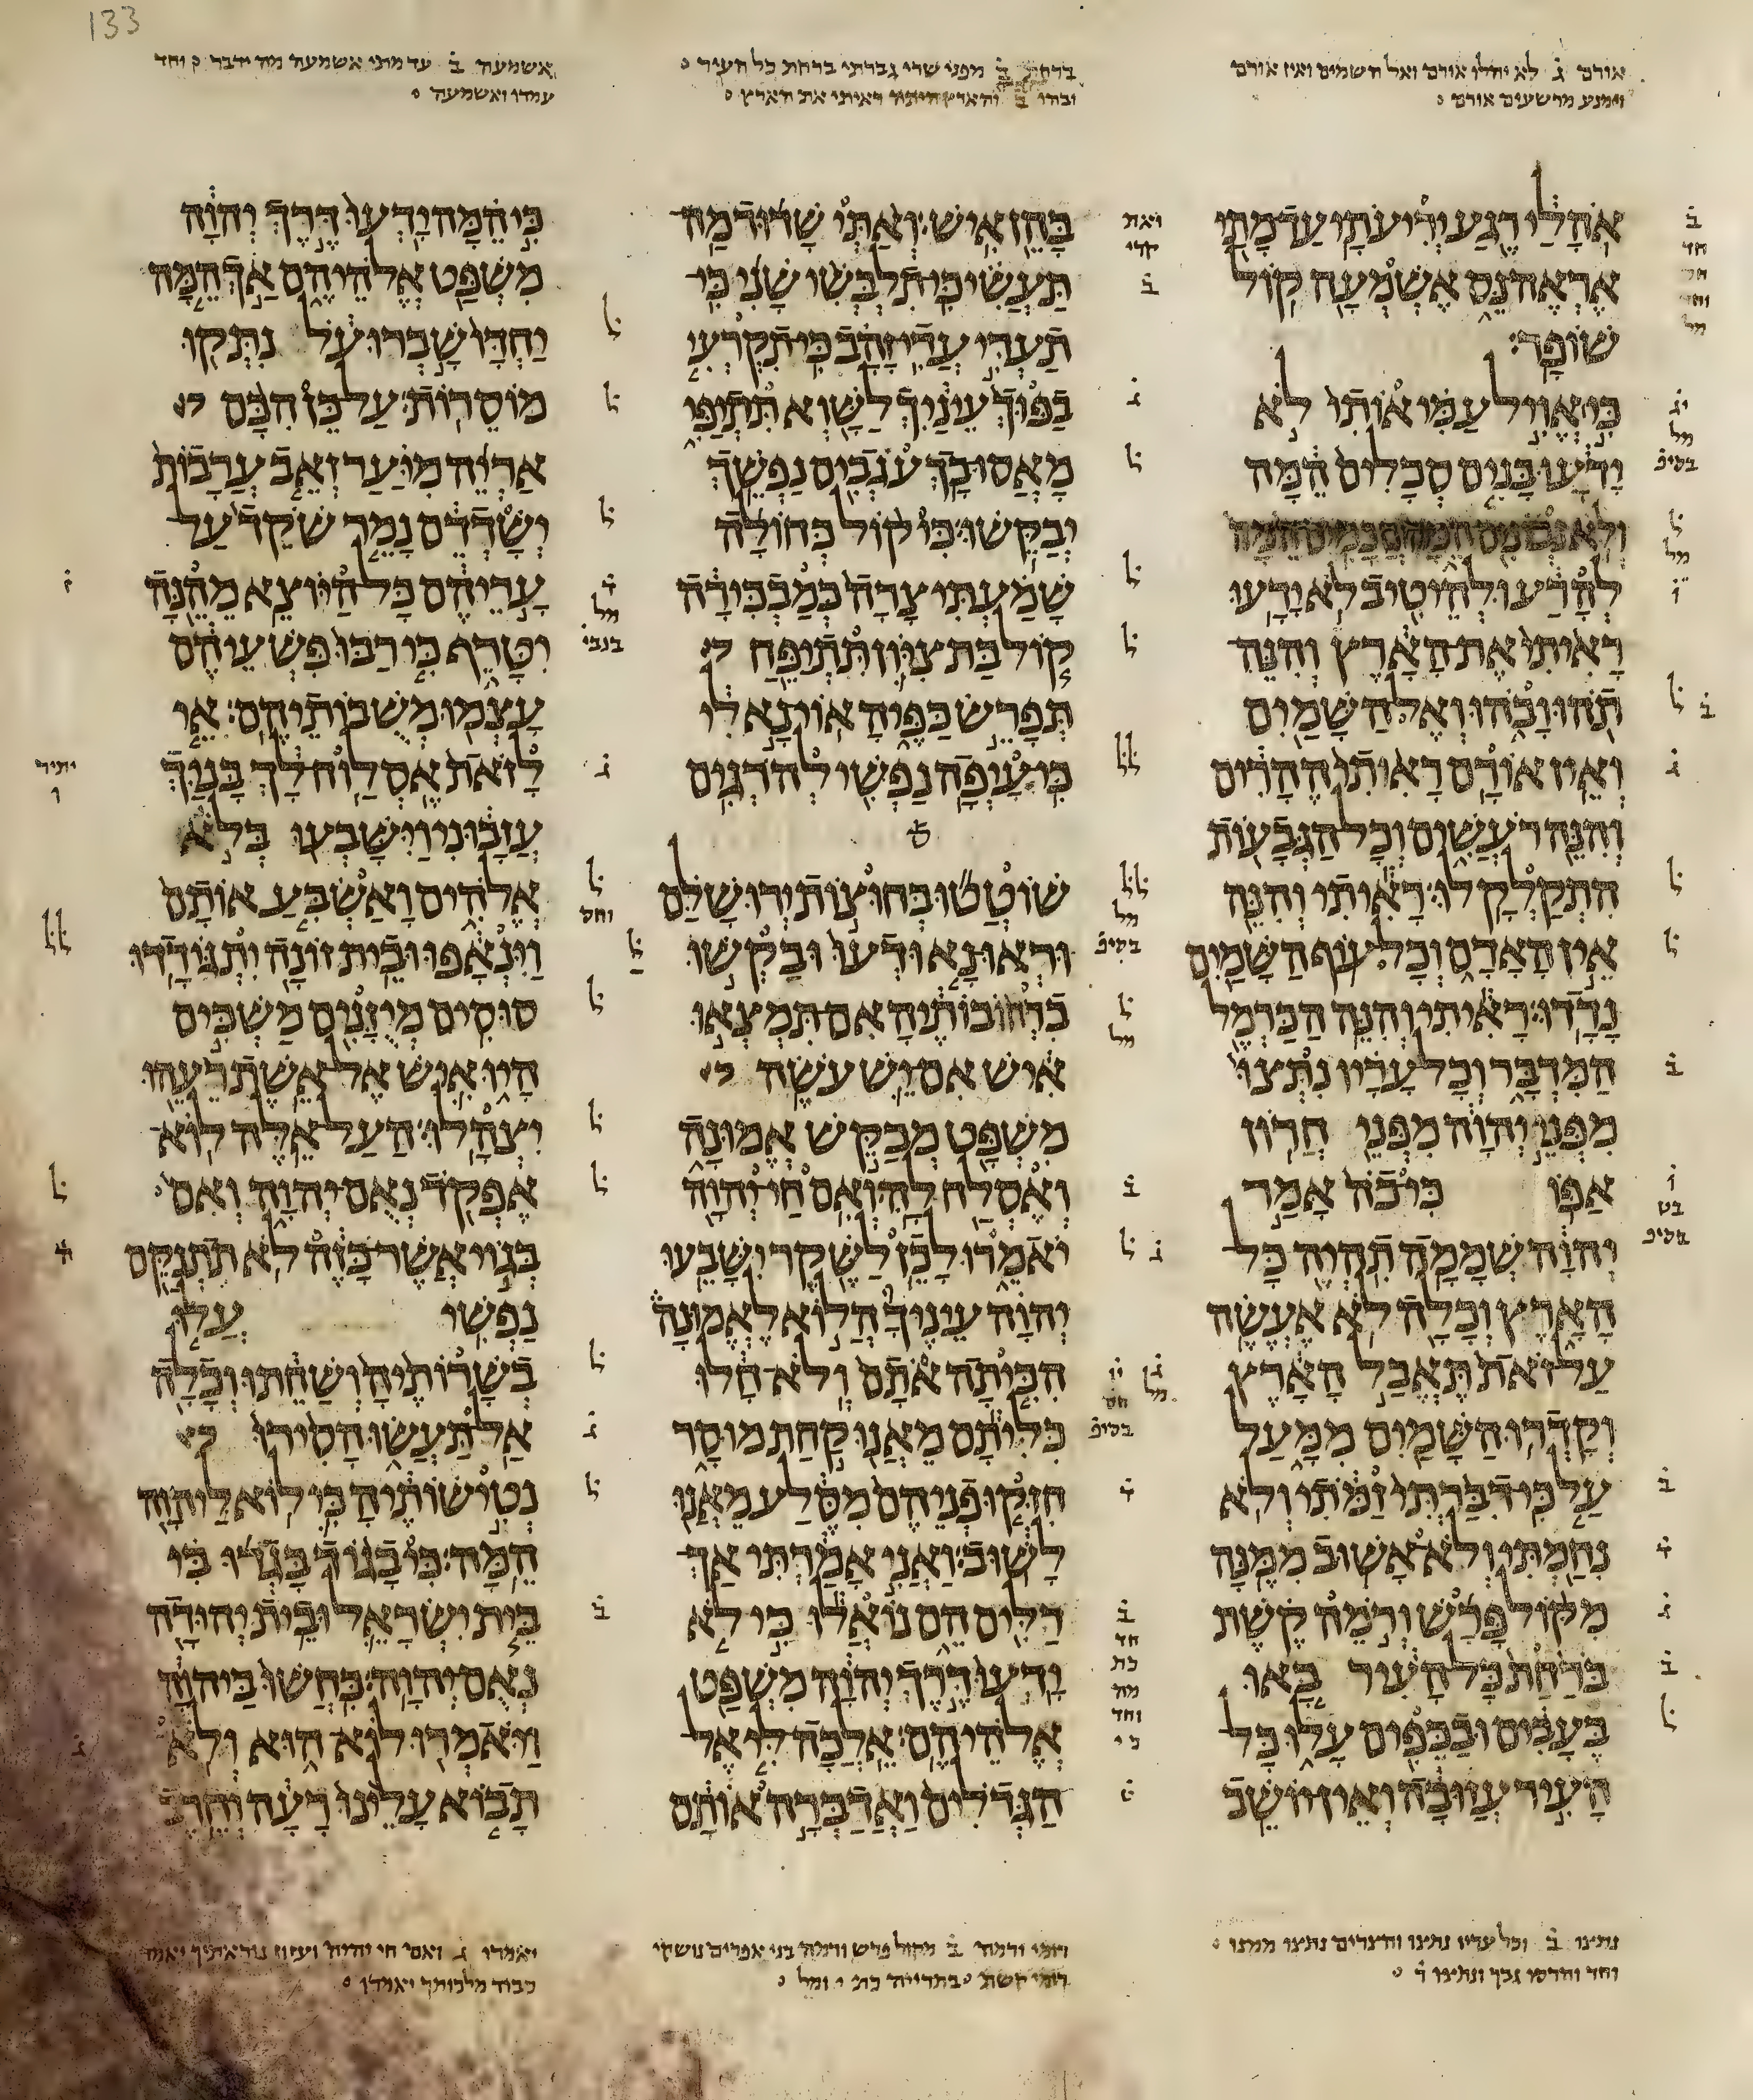 133
אורם ג לא יהלו אורם ואל השמים ואין אורם
וימנע מרשעים אורם
ברחת ב מפני שרי גברתי ברחת כל העיר
ובהו ב והארץ היתה ראיתי את הארץ
אשמעה ב עד מתי אשמעה מה ידבר וחד
עמדו ואשמעה
אהלי רגע יריעתי עד מתי
אראה נס אשמעה קול
שופר׃
כי אויל עמי אותי לא
ידעו בנים סכלים המה
ולא נבונים המה חכמים המה
להרע ולהיטיב לא ידעו
ראיתי את הארץ והנה
תהו ובהו ואל השמים
ואין אורם ראיתי ההרים
והנה רעשים וכל הגבעות
התקלקלו׃ ראיתי והנה
אין האדם וכל עוף השמים
נדדו׃ ראיתי והנה הכרמל
המדבר וכל עריו נתצו
מפני יהוה מפני חרון
אפו כי כה אמר
יהוה שממה תהיה כל
הארץ וכלה לא אעשה
על זאת תאבל הארץ
וקדרו השמים ממעל
על כי דברתי זמתי ולא
נחמתי ולא אשוב ממנה
מקול פרש ורמה קשת
ברחת כל העיר באו
בעבים ובכפים עלו כל
העיר עזובה ואין יושב
בהן איש׃ ואתי שדוד מה
תעשי כי תלבשי שני כי
תעדי עדי זהב כי תקרעי
בפוך עיניך לשוא תתיפי
מאסו בך עגבים נפשך
יבקשו׃ כי קול כחולה
שמעתי צרה כמבכירה
קול בת ציון תתיפח
תפרש כפיה אוי נא לי
כי עיפה נפשי להרגים
שוטטו בחוצות ירושלם
וראו נא ודעו ובקשו
ברחובותיה אם תמצאו
איש אם יש עשה
משפט מבקש אמונה
ואסלח לה׃ ואם חי יהוה
יאמרו לכן לשקר ישבעו
יהוה עיניך הלוא לאמונה
הכיתה אתם ולא חלו
כליתם מאנו קחת מוסר
חזקו פניהם מסלע מאנו
לשוב׃ ואני אמרתי אך
דלים הם נואלו כי לא
ידעו דרך יהוה משפט
אלהיהם׃ אלכה לי אל
הגדלים ואדברה אותם
כי המה ידעו דרך יהוה
משפט אלהיהם אך המה
יחדו שברו על נתקו
מוסרות׃ על כן הכם
אריה מיער זאב ערבות
ישדדם נמר שקד על
עריהם כל היוצא מהנה
יטרף כי רבו פשעיהם
עצמו משבותיהם׃ אי
לזאת אסלוח לך בניך
עזבוני וישבעו בלא
אלהים ואשבע אותם
וינאפו ובית זונה יתגודדו
סוסים מיזנים משכים
היו איש אל אשת רעהו
יצהלו׃ העל אלה לוא
אפקד נאם יהוה ואם
בגוי אשר כזה לא תתנקם
נפשי עלו
בשרותיה ושחתו וכלה
אל תעשו הסירו
נטישותיה כי לוא ליהוה
המה׃ כי בגוד בגדו בי
בית ישראל ובית יהודה
נאם יהוה׃ כחשו ביהוה
ויאמרו לוא הוא ולא
תבוא עלינו רעה וחרב
נתצו ב וכל עריו נתצו וחצרים נתצו ממנו
וחד והרסו גבך ונתצו
רומי ורמה ב מקול פרש ורמה בני אפרים נושקי
רומי קשת בתרייה כת י ומל
יאמרו ג ואם חי יהוה ועזוז נוראתיך יאמרו
כבוד מלכותך יאמרו